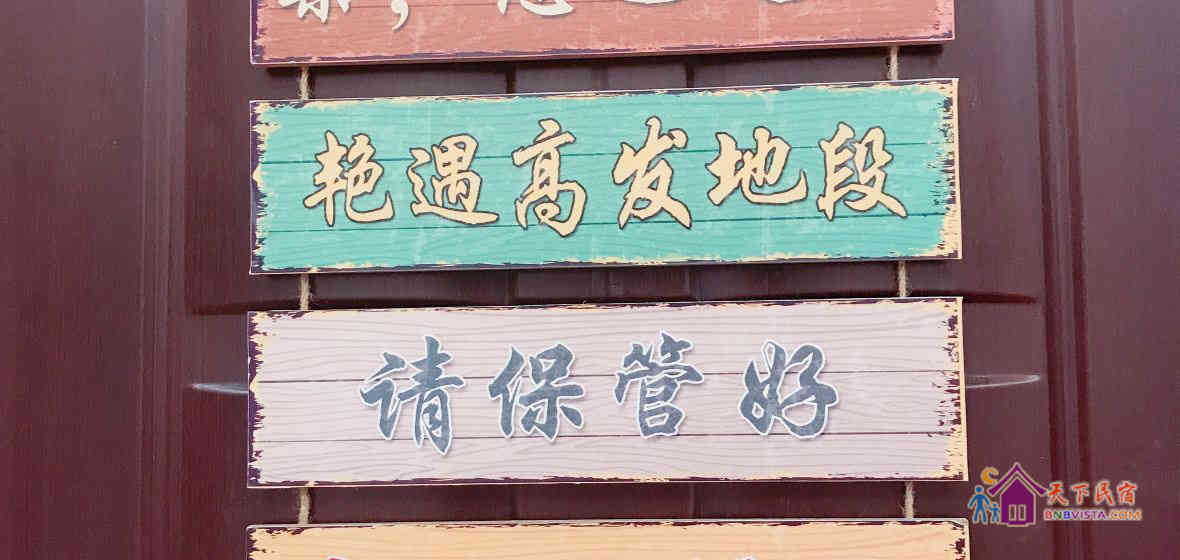 艳遇高发地段
请保管好
天下民宿
BNBVISTA.COM